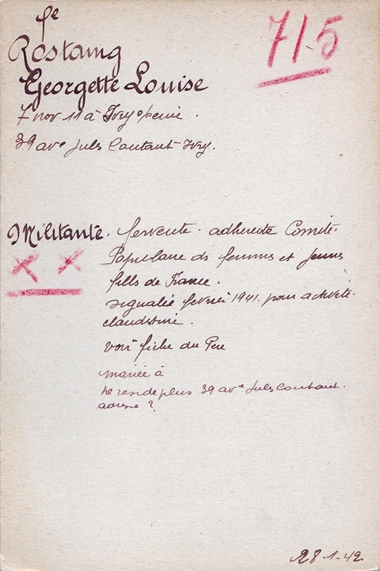 fe
715
Rostaing
Georgette Louise
7 nov. 11 à Ivry s/Seine.
39 ave Jules Coutant-Ivry.
Militante. fervente. adherente Comité
Populaire ds femmes et jeunes
filles de France.
signalée février 1941. pour activité
clandestine.
voir fiche du Père
mariée à
ne reside plus 39 ave Jules Coutant.
adresse ?
28-1-42